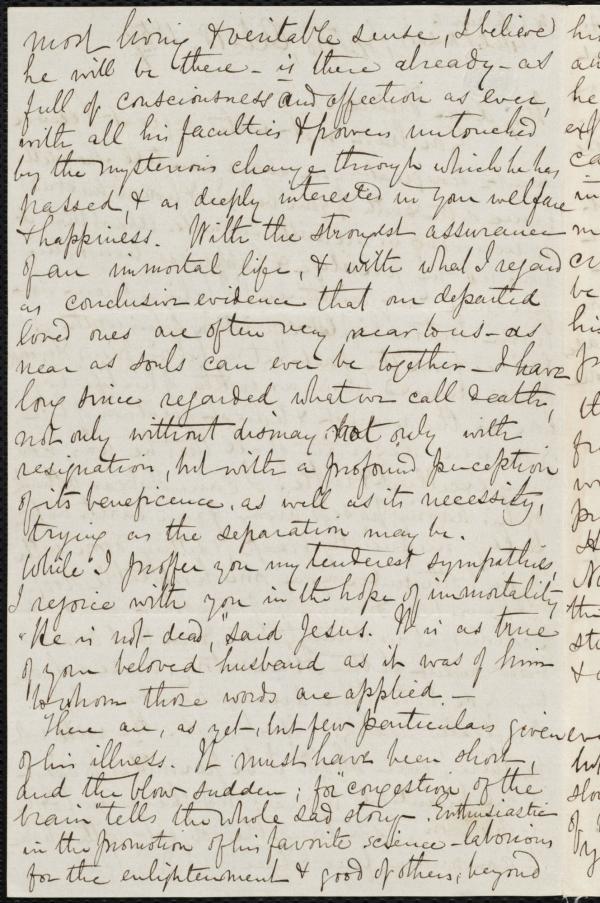 most living & veritable sense, I believe
he will be there – is there already – as
full of consciousness and affection as ever,
with all his faculties & powers untouched
by the mysterious change through which he has
passed, & as deeply interested in your welfare
& happiness. With the strongest assurance
of an immortal life, & with what I regard
as conclusive evidence that our departed
loved ones are often very near to us – as
near as souls can ever be together – I have
long since regarded what we call death,
not only without dismay, not only with
resignation, but with a profound perception
of its beneficence, as well as its necessity,
trying as the separation may be.
While I proffer you my tenderest sympathies,
I rejoice with you in the hope of immortality.
"He is not dead," said Jesus. It is as true
of your beloved husband as it was of him
to whom those words are applied. –
There are, as yet, but few particulars given
of his illness. It must have been short,
and the blow sudden; for "congestion of the
brain" tells the whole sad story. Enthusiastic
in the promotion of his favorite science – laborious
for the enlightenment & good of others, beyond